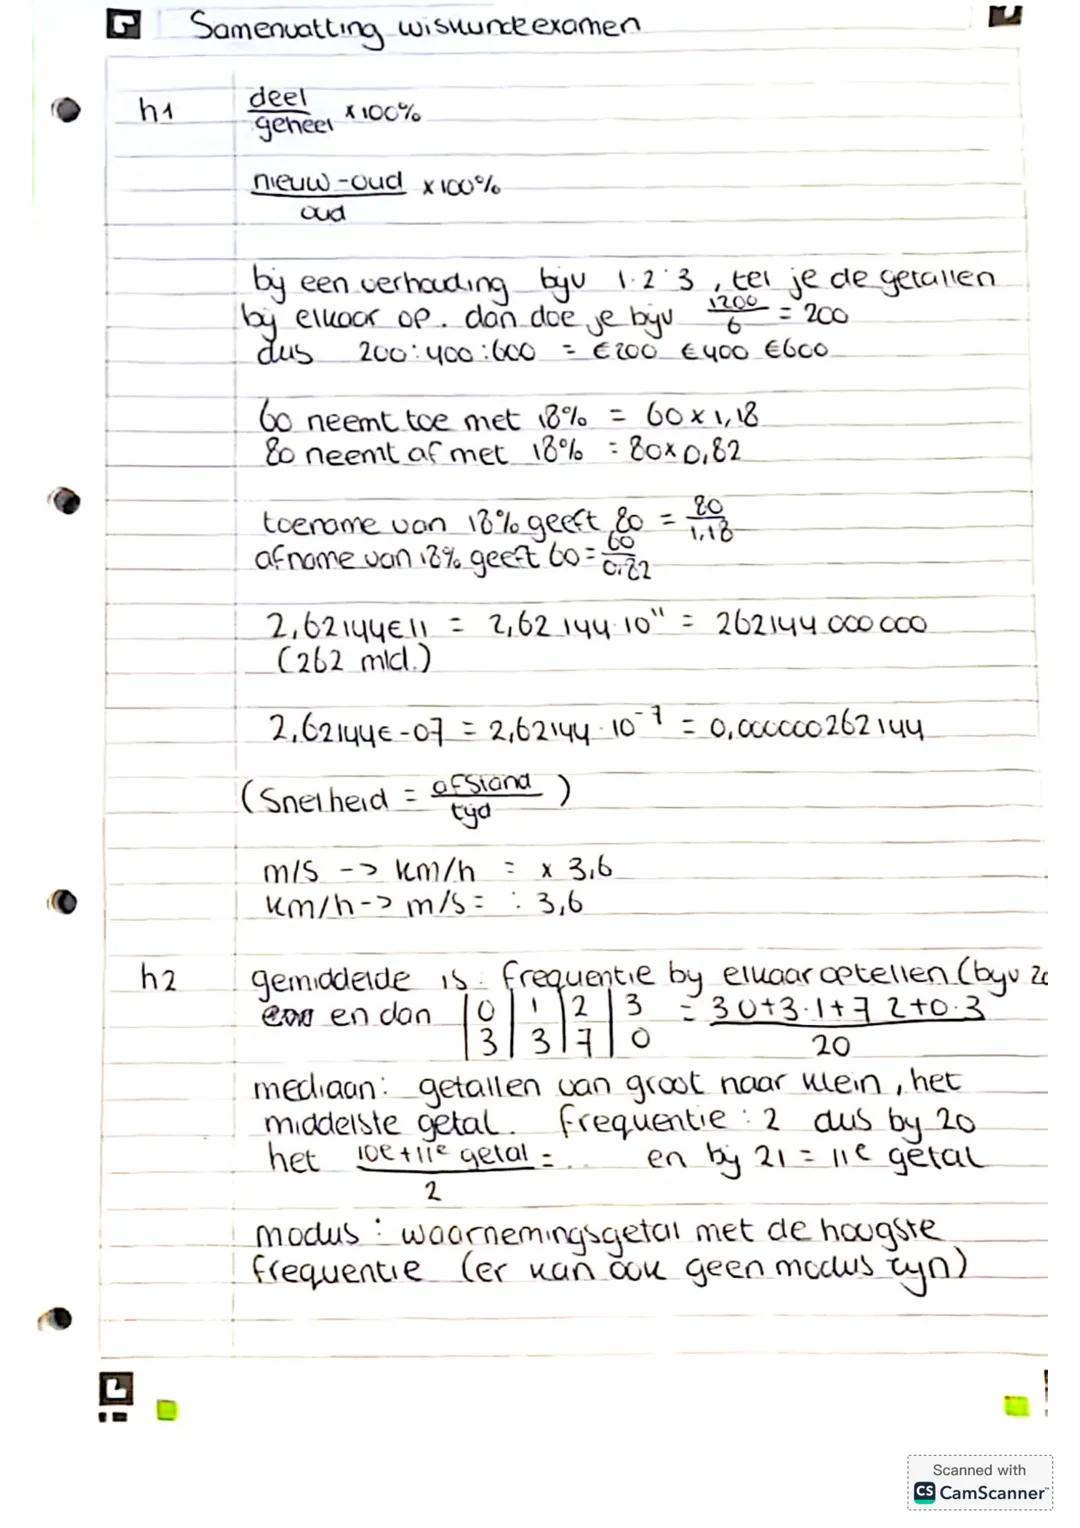 Samenvatting wiskunde examen
h1 deel
geheel × 100%
nieuw - oud × 100%
oud
bij een verhouding bijv 1:2:3, tel je de getallen
bij elkaar op. dan doe je bijv 1200/6 = 200
dus 200:400:600 = €200 €400 €600
60 neemt toe met 18% = 60 × 1,18
80 neemt af met 18% = 80 × 0,82
toename van 18% geeft 80 = 80/1,18
afname van 18% geeft 60 = 60/0,82
2,62144E11 = 2,62144·10¹¹ = 262144 000 000
(262 mld.)
2,62144E-07 = 2,62144·10⁻⁷ = 0,000000262144
(Snelheid = afstand/tijd)
m/s -> km/h = × 3,6
km/h -> m/s = : 3,6
h2 gemiddelde is: frequentie bij elkaar optellen (bijv 20
en dan |0|1|2|3 = 3·0+3·1+7·2+0·3
|3|3|7|0 20
mediaan: getallen van groot naar klein, het
middelste getal. frequentie : 2 dus bij 20
het 10e+11e getal = ... en bij 21 = 11e getal
2
modus: waarnemingsgetal met de hoogste
frequentie (er kan ook geen modus zijn)
Scanned with
CS CamScanner